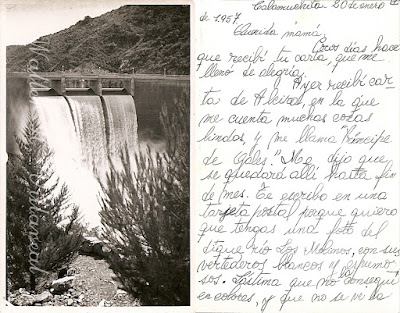 Calamuchita 20 enero
de 1957.
Querida mamá:
Pocos días hace
que recibí tu carta, que me
llenó de alegría.
Ayer recibí car-
ta de Alcira, en la que
me cuenta muchas cosas
lindas, y me llama "Príncipe
de Gales." Me dijo que
se quedará allí hasta fin
de mes. Te escribo en una
tarjeta postal porque quiero
que tengas una foto del
dique río Los Molinos, con sus
vertederos blancos y espumo-
sos. Lástima que no la conseguí
en colores, y que no se ve la